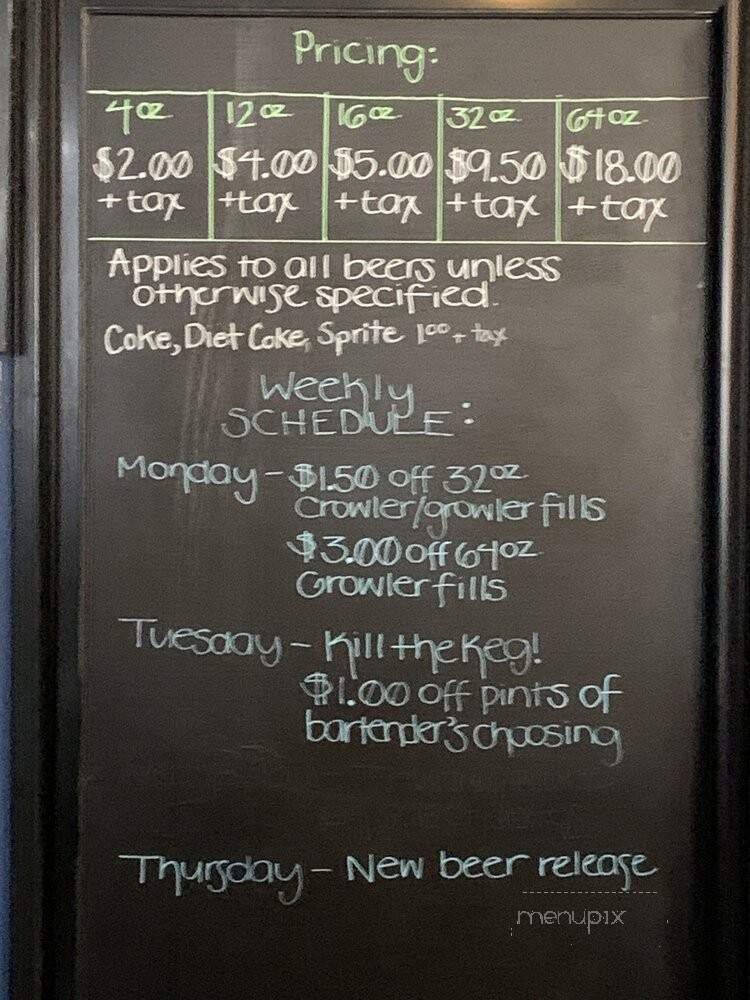 Pricing:
4oz 12oz 16oz 32oz 64oz
$2.00 $4.00 $5.00 $9.50 $18.00
+tax +tax +tax +tax +tax
Applies to all beers unless
otherwise specified.
Coke, Diet Coke, Sprite 1.00 + tax
Weekly
SCHEDULE:
Monday - $1.50 off 32oz
Crowler/growler fills
$3.00 off 64oz
Growler fills
Tuesday - Kill the Keg!
$1.00 off pints of
bartender's choosing
Thursday - New beer release
menupix